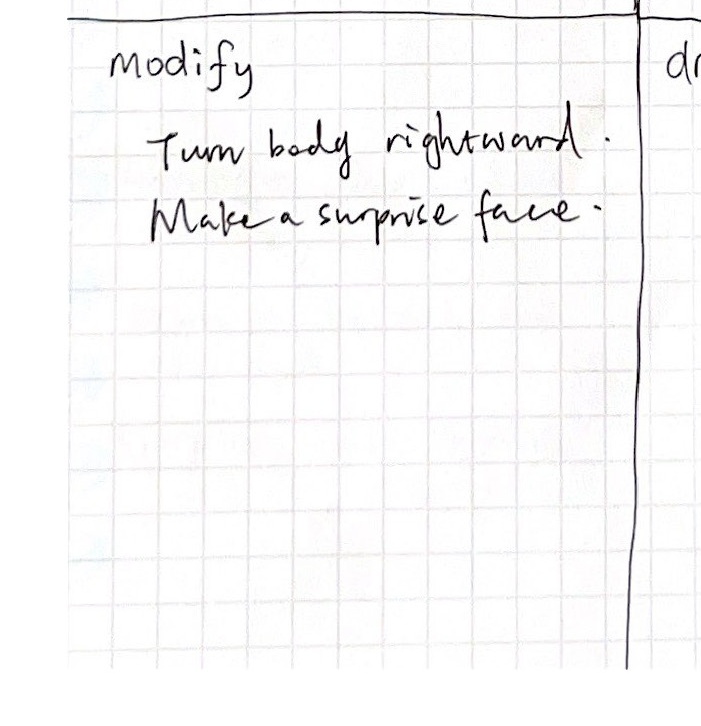 modify
dr
Turn body rightward.
Make a surprise face.